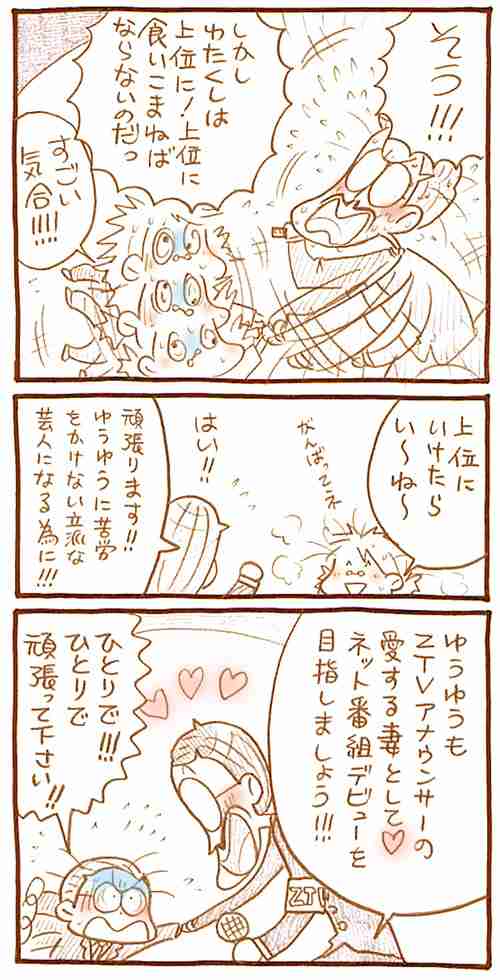 そう!!!
しかし
わたくしは
上位に!上位に
食いこまねば
ならないのだっ
すごい
気合!!!!
上位に
いけたら
い〜ね〜
がんばってネ
はい!!
頑張ります!!
ゆうゆうに苦労
をかけない立派な
芸人になる為に!!!
ゆうゆうも
ZTVアナウンサーの
愛する妻として♥
ネット番組デビューを
目指しましょう!!!
ZTV
ひとりで!!!
ひとりで
頑張って下さい!!